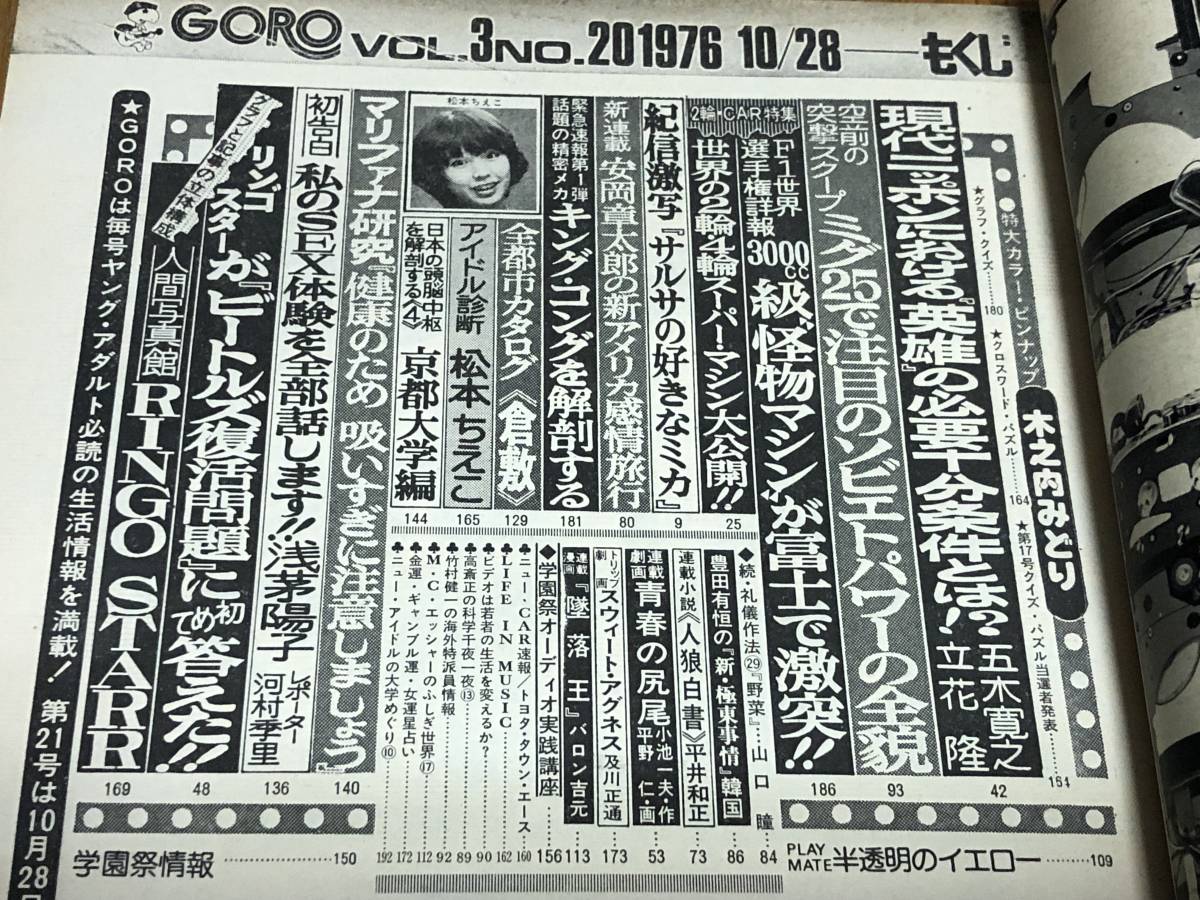 GORO VOL.3 NO.20 1976 10/28 もくじ
●特大カラー・ピンナップ 木之内みどり
★グラフ・クイズ……180
★クロスワード・パズル……164
★第17号クイズ・パズル当選者発表……164
現代ニッポンにおける『英雄』の必要十分条件とは!? 五木寛之 立花隆
42
空前の突撃スクープ ミグ25で注目のソビエトパワーの全貌
93
2輪・CAR特集
F1世界選手権詳報 3000cc級“怪物マシン”が富士で激突!!
186
世界の2輪/4輪スーパー・マシン大公開!!
25
紀信激写『サルサの好きなミカ』
9
新連載 安岡章太郎の新アメリカ感情旅行
80
緊急速報第1弾 話題の精密メカ キング・コングを解剖する
181
全都市カタログ《倉敷》
129
松本ちえこ
アイドル診断 松本ちえこ
165
日本の頭脳中枢を解剖する〈4〉 京都大学編
144
マリファナ研究『健康のため 吸いすぎに注意しましょう』
140
初告白 私のSEX体験を全部話します!! 浅茅陽子
レポーター 河村季里
136
グラフと記事の立体構成
リンゴ・スターが『ビートルズ復活問題』に初めて答えた!!
48
人間写真館 RINGO STARR
169
◆続・礼儀作法㉙『野菜』……山口 瞳 84
豊田有恒の『新・極東事情』韓国 86
連載小説《人狼白書》平井和正 73
連載劇画 青春の尻尾 小池一夫・作 平野 仁・画 53
トリップ劇画 スウィート・アグネス 及川正通 173
連載漫画『墜落王』バロン吉元 113
◆学園祭オーディオ実践講座 156
♣ニュー・CAR速報/トヨタ・タウン・エース 160
♣LIFE IN MUSIC……162
♣ビデオは若者の生活を変えるか?……90
♣高斎正の科学千夜一夜⑬……89
♣竹村健一の海外特派員情報……92
♣M・C・エッシャーのふしぎ世界⑰……112
♣金運・ギャンブル運・女運星占い……172
♣ニュー・アイドルの大学めぐり⑩……192
PLAY MATE 半透明のイエロー……109
学園祭情報……150
★GOROは毎号ヤング・アダルト必読の生活情報を満載! 第21号は10月28日